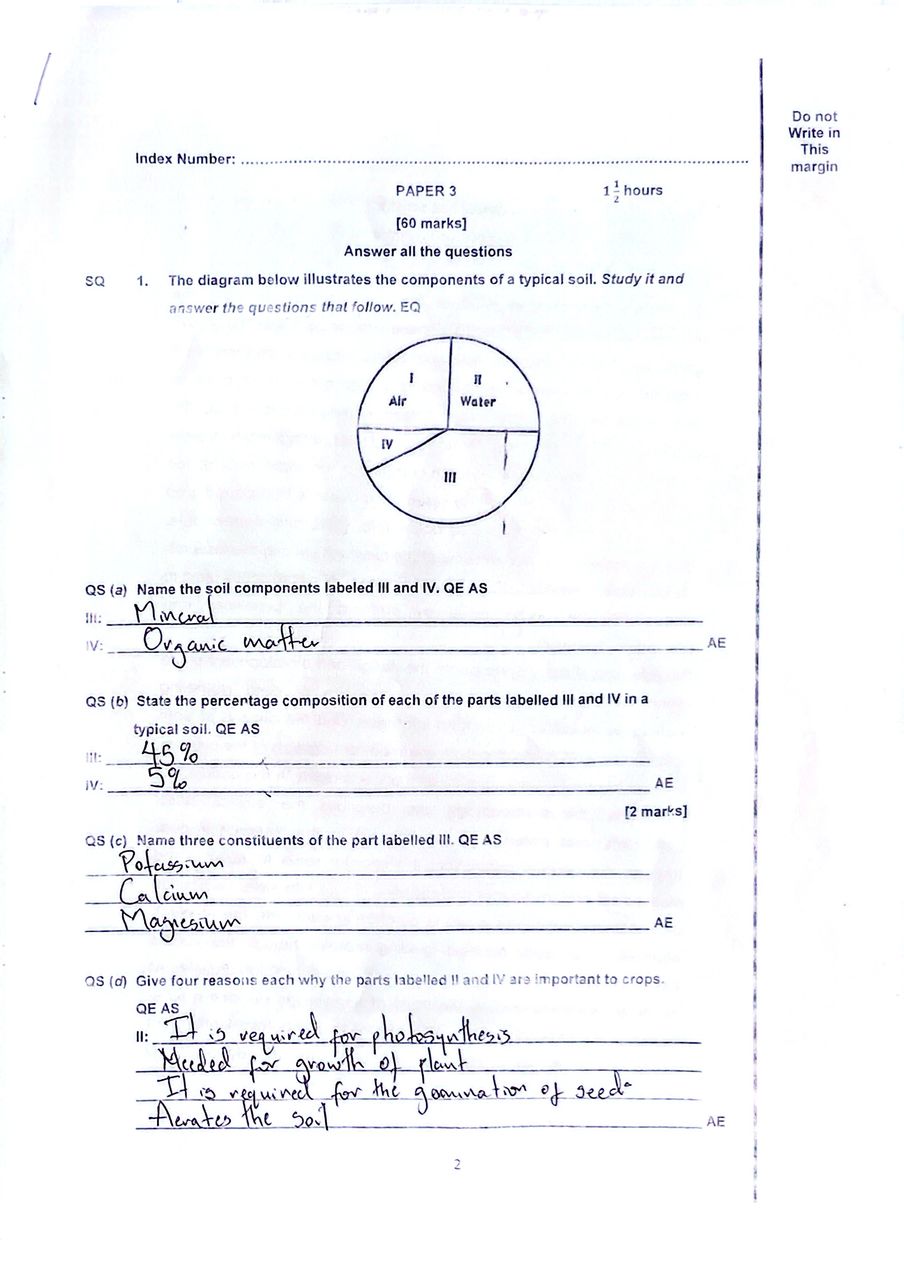 Do not
Write in
This
margin
Index Number: ....................................................................................................
PAPER 3 1 1/2 hours
[60 marks]
Answer all the questions
SQ 1. The diagram below illustrates the components of a typical soil. Study it and
answer the questions that follow. EQ
I
Air
II
Water
IV
III
QS (a) Name the soil components labeled III and IV. QE AS
III: Mineral
IV: Organic matter AE
QS (b) State the percentage composition of each of the parts labelled III and IV in a
typical soil. QE AS
III: 45%
IV: 5% AE
[2 marks]
QS (c) Name three constituents of the part labelled III. QE AS
Potassium
Calcium
Magnesium AE
QS (d) Give four reasons each why the parts labelled II and IV are important to crops.
QE AS
II: It is required for photosynthesis
Needed for growth of plant
It is required for the germination of seed
Aerates the soil AE
2